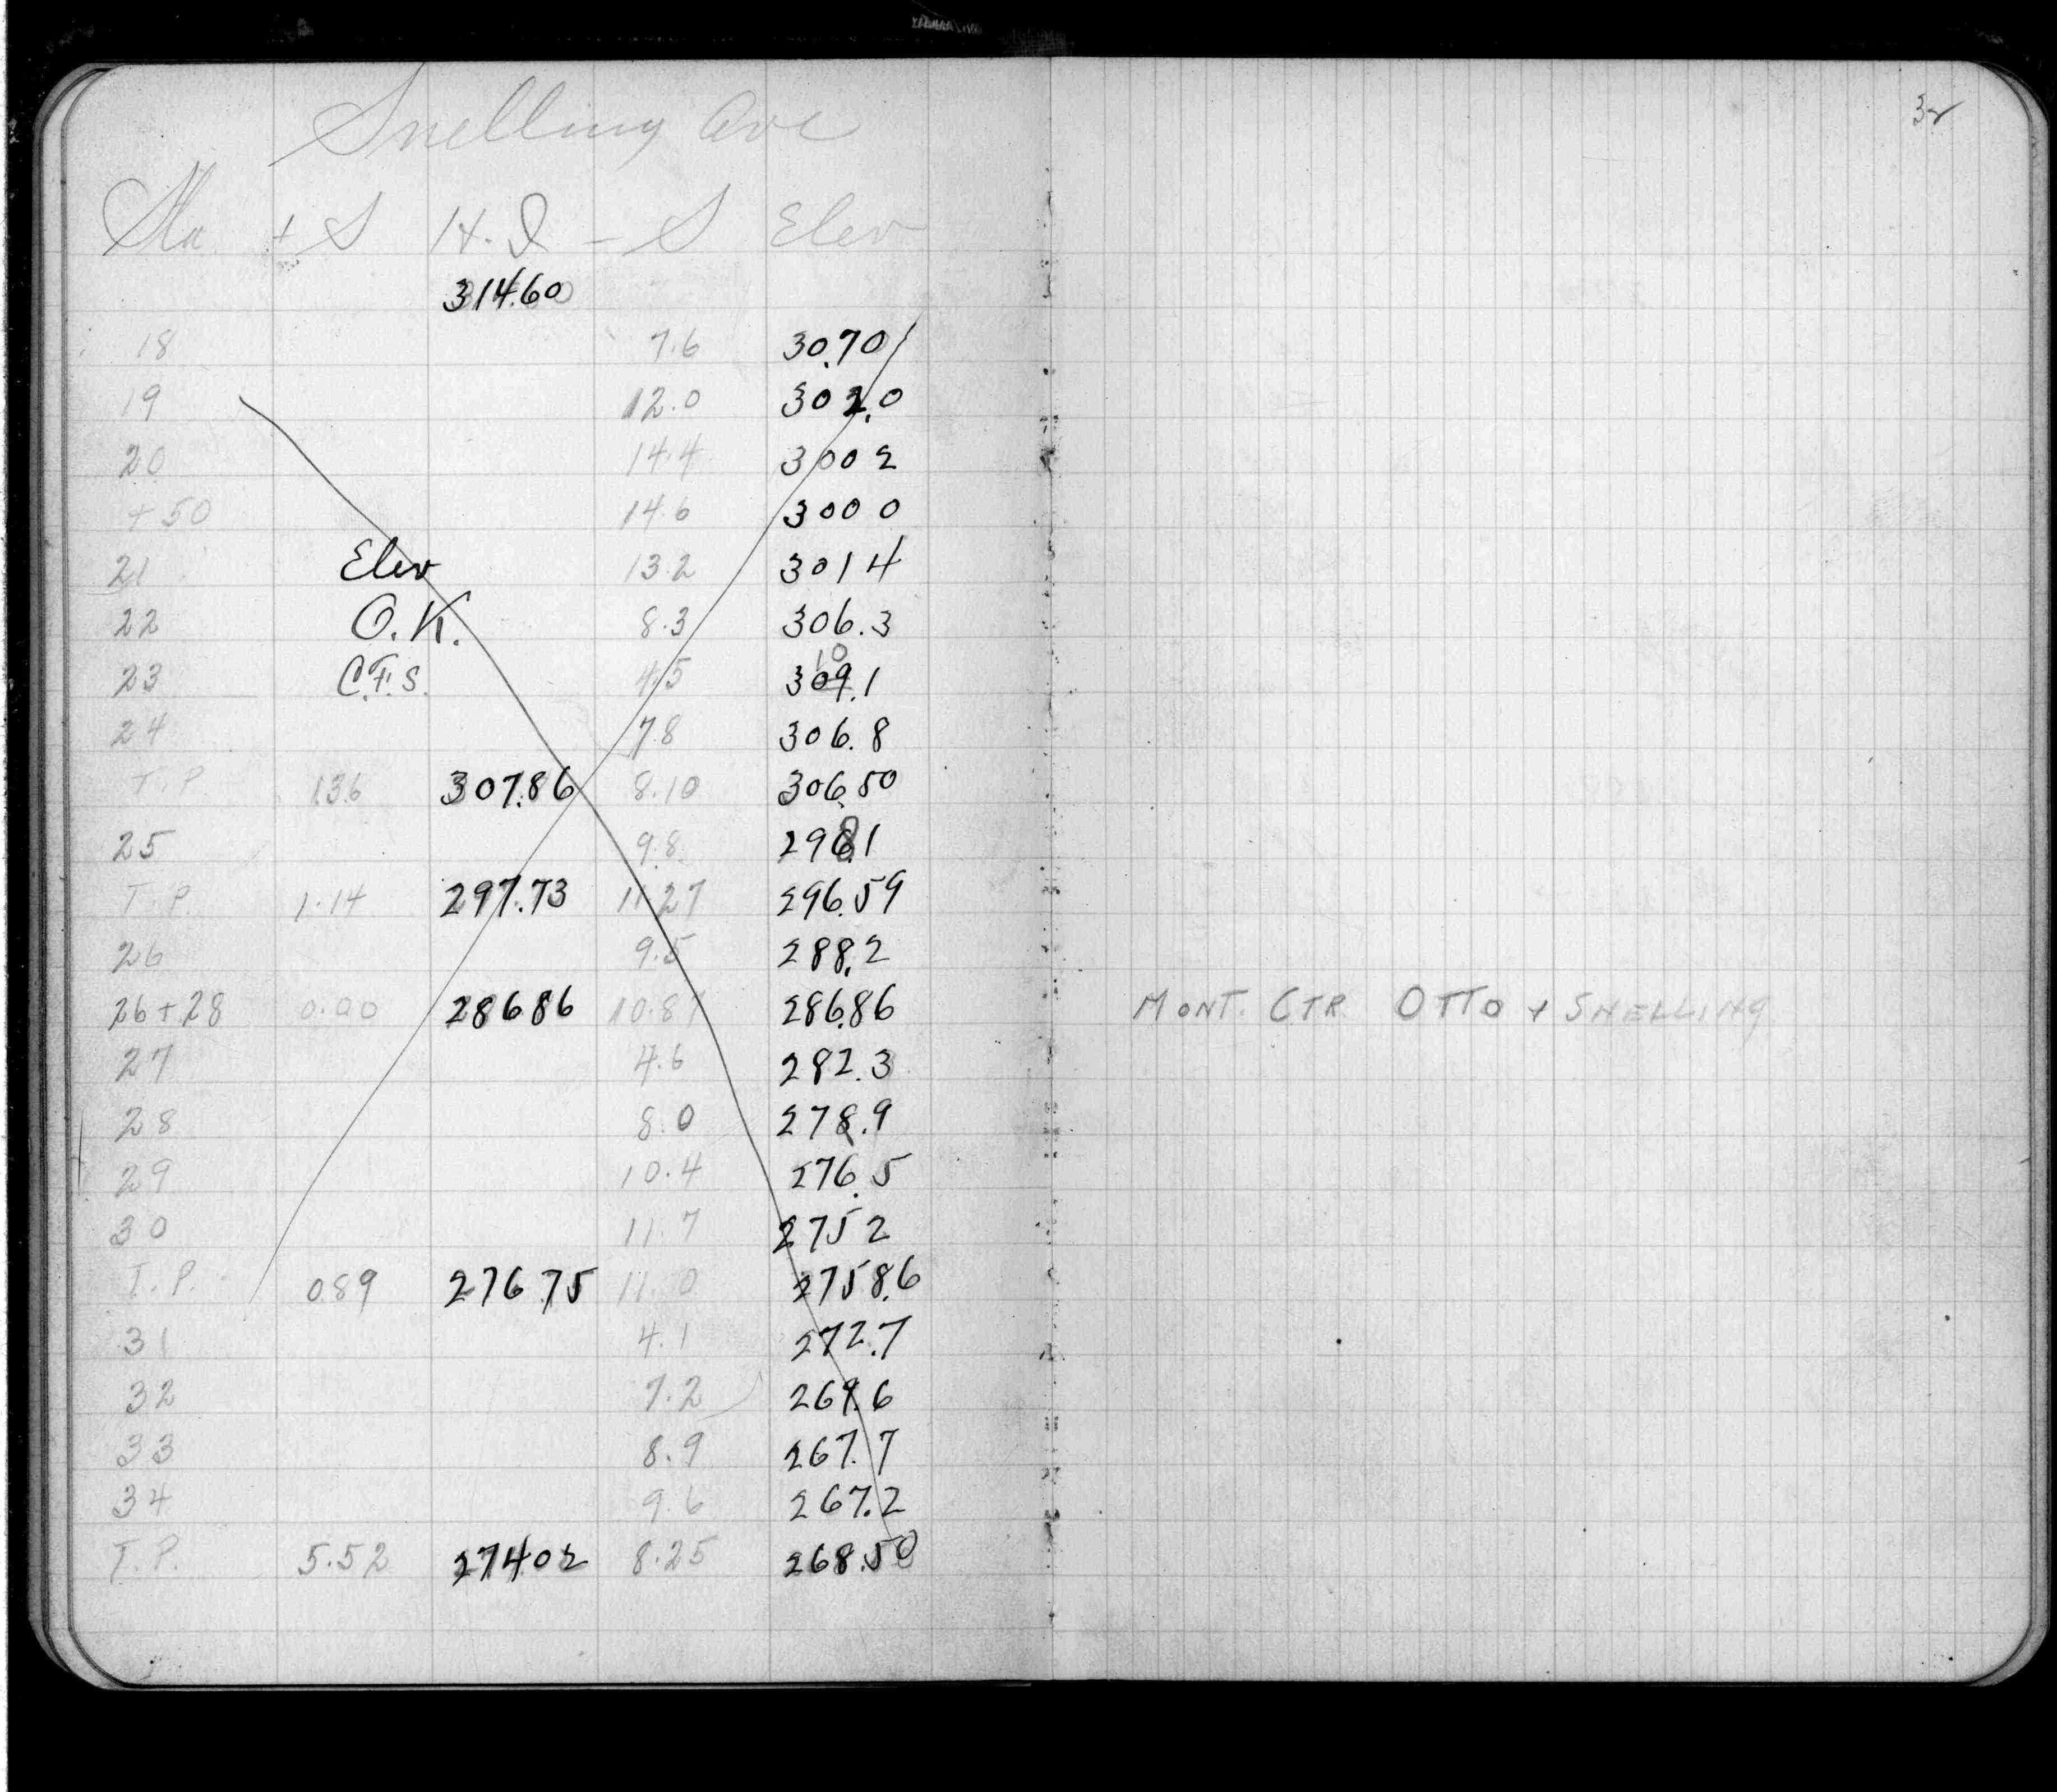 Snelling Ave
Sta + S H.I - S Elev
314.60
18 7.6 30.70
19 12.0 302.0
20 14.4 3002
+50 14.6 3000
21 Elev 13.2 3014
22 O.K. 8.3 306.3
10
23 C.F.S. 4.5 309.1
24 7.8 306.8
T.P. 1.36 307.86 8.10 306.50
25 9.8 1
T.P. 1.14 297.73 11.27 296.59
26 9.5 288.2
26+28 0.00 286.86 10.87 286.86
27 4.6 282.3
28 8.0 278.9
29 10.4 276.5
30 11.7 2752
T.P. 0.89 276.75 2758.6
31 4.1 272.7
32 7.2 269.6
33 8.9 267.7
34 9.6 267.2
T.P. 5.52 27402 8.25 268.50
32
MONT. CTR. OTTO + SNELLING